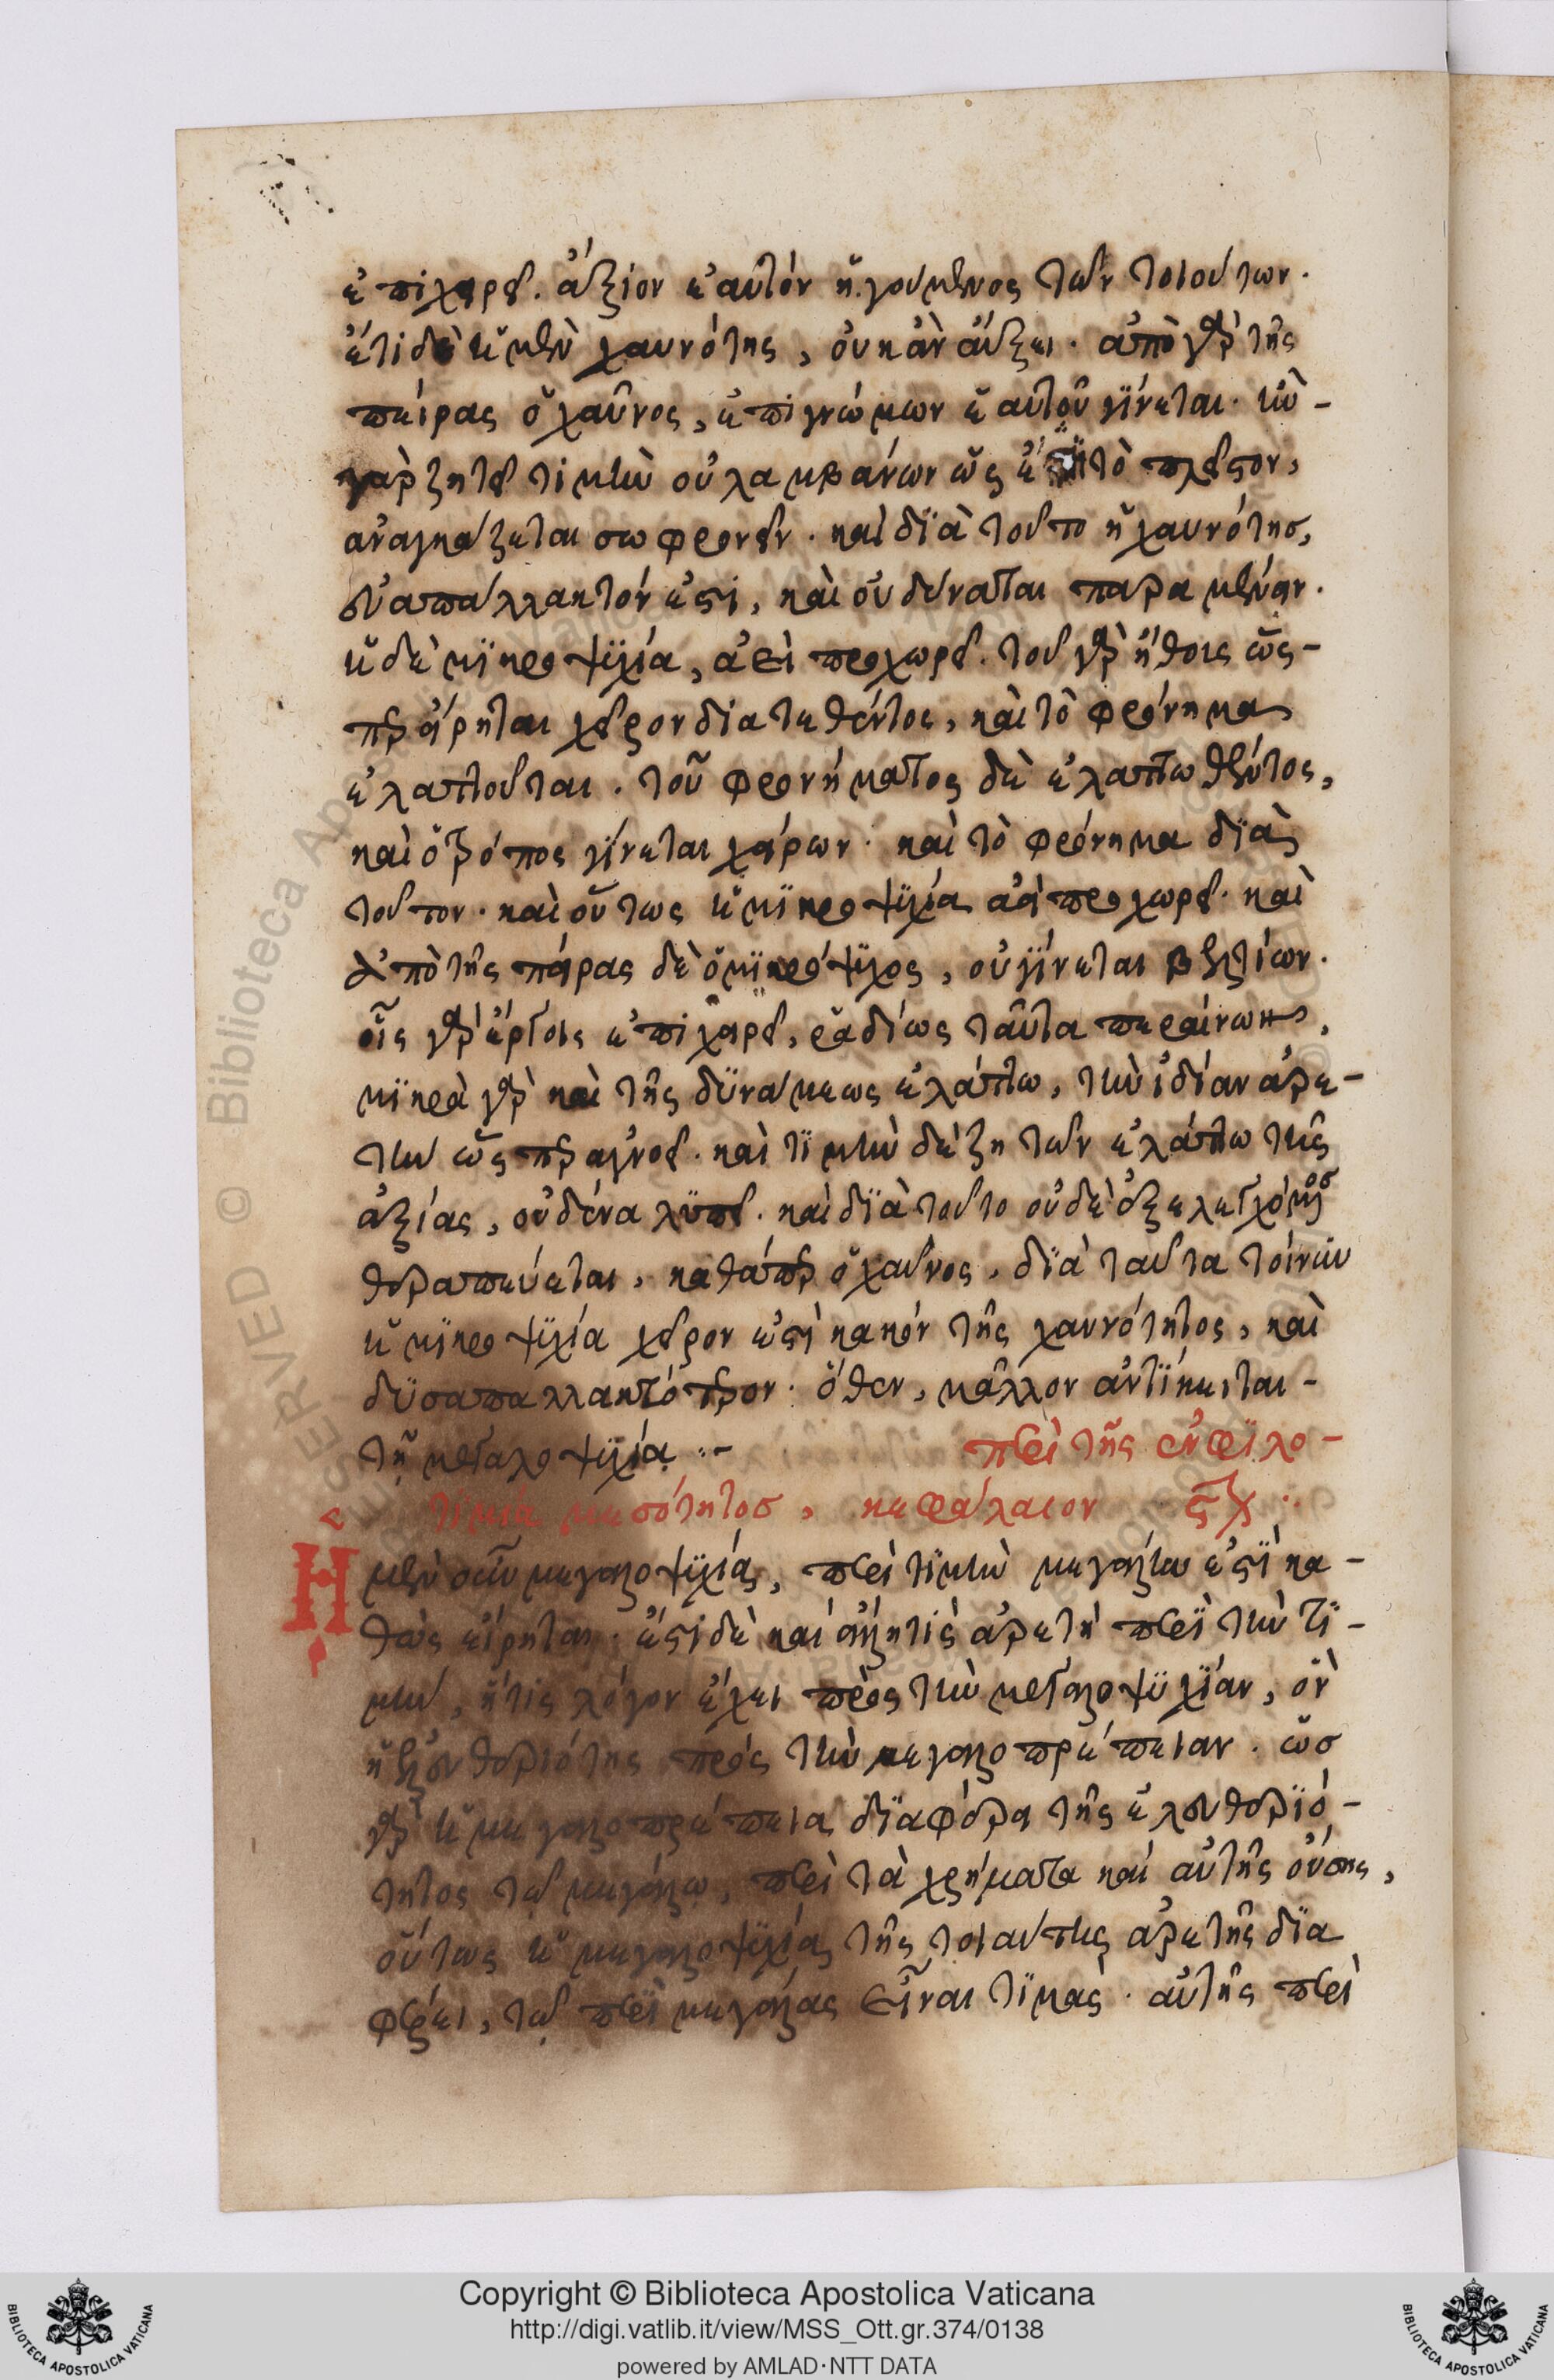 ἐπιχειρεῖ. ἄξιον ἑαυτὸν ἡγούμενος τῶν τοιούτων.
ἔτι δὲ ἡ μὲν χαυνότης, οὐκ ἂν αὔξει. ἀπὸ γὰρ τῆς
πείρας ὁ χαῦνος, ἐπιγνώμων ἑαυτοῦ γίνεται. ἣν -
γὰρ ζητεῖ τιμὴν οὐ λαμβάνων ὡς τὸ πλεῖστον,
ἀναγκάζεται σωφρονεῖν. καὶ διὰ τοῦτο ἡ χαυνότησ,
εὐαπάλλακτόν ἐστι, καὶ οὐ δύναται παραμένειν.
ἡ δὲ μικροψυχία, ἀεὶ προχωρεῖ. τοῦ γὰρ ἤθους ὥς-
περ εἴρηται χεῖρον διατεθέντος, καὶ τὸ φρόνημα
ἐλαττοῦται. τοῦ φρονήματος δὲ ἐλαττωθέντος,
καὶ ὁ τρόπος γίνεται χείρων. καὶ τὸ φρόνημα διὰ
τοῦτον. καὶ οὕτως ἡ μικροψυχία ἀεὶ προχωρεῖ. καὶ
ἀπὸ τῆς πείρας δὲ ὁ μικρόψυχος, οὐ γίνεται βελτίων.
οἷς γὰρ ἔργοις ἐπιχειρεῖ, ῥαδίως ταῦτα περαίνων,
μικρὰ γὰρ καὶ τῆς δυνάμεως ἐλάττω, τὴν ἰδίαν ἀρε-
τὴν ὥςπερ ἀγνοεῖ. καὶ τιμὴν δὲ ζητῶν ἐλάττω τῆς
ἀξίας, οὐδένα λυπεῖ. καὶ διὰ τοῦτο οὐδὲ ἐξελεγχόμενος
θεραπεύεται, καθάπερ ὁ χαῦνος. διὰ ταῦτα τοίνυν
ἡ μικροψυχία χεῖρον ἐστὶ κακὸν τῆς χαυνότητος, καὶ
δυσαπαλλακτότερον. ὅθεν, μᾶλλον ἀντίκειται -
τῇ μεγαλοψυχίᾳ :- περὶ τῆς ἐν φιλο-
τιμίᾳ μεσότητοσ, κεφάλαιον
Ἡ μὲν οὖν μεγαλοψυχία, περὶ τιμὴν μεγάλην ἐστὶ κα-
θὼς εἴρηται. ἔστι δὲ καὶ ἄλλη τις ἀρετὴ περὶ τὴν τι-
μὴν, ἥτις λόγον ἔχει πρὸς τὴν μεγαλοψυχίαν, ὃν
ἡ ἐλευθεριότης πρὸς τὴν μεγαλοπρέπειαν. ὡσ
γὰρ ἡ μεγαλοπρέπεια διαφέρει τῆς ἐλευθεριό-
τητος τῷ μεγάλῳ, περὶ τὰ χρήματα καὶ αὐτῆς οὔσης,
οὕτως ἡ μεγαλοψυχία τῆς τοιαύτης ἀρετῆς δια
φέρει, τῷ περὶ μεγάλας εἶναι τιμάς. αὐτῆς περὶ
Copyright © Biblioteca Apostolica Vaticana
http://digi.vatlib.it/view/MSS_Ott.gr.374/0138
powered by AMLAD·NTT DATA